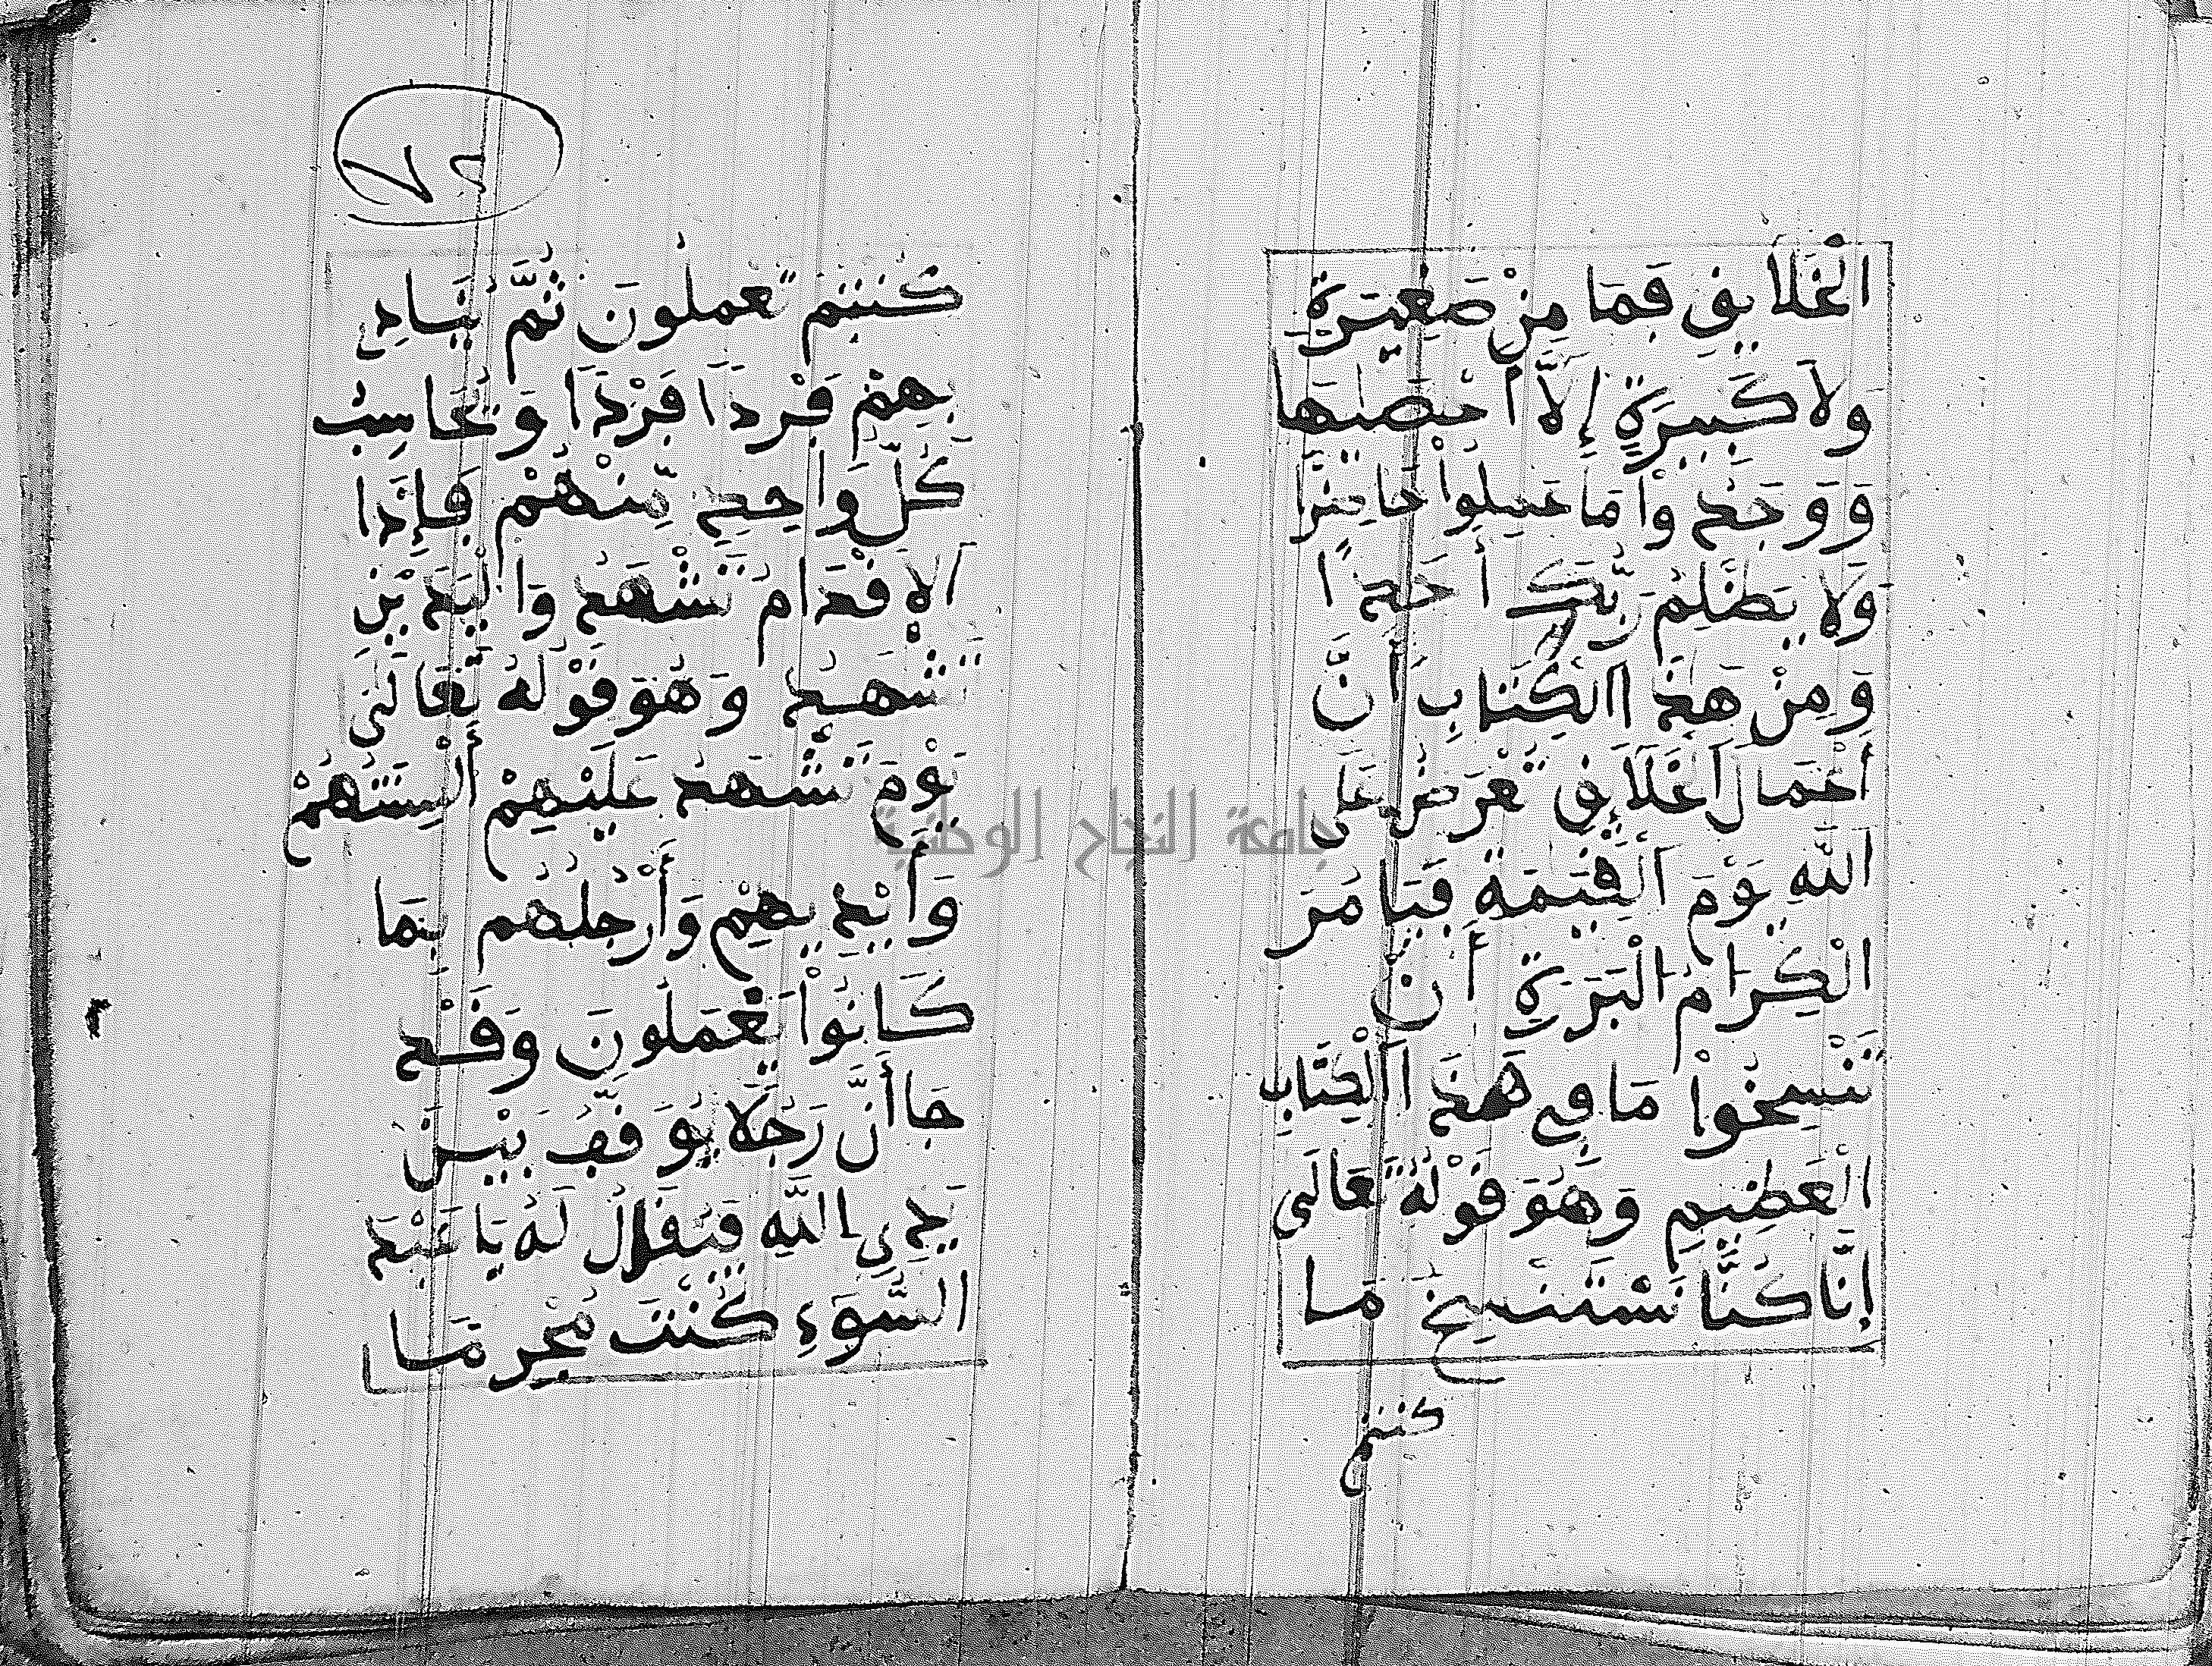 الْخَلَايِقِ فَمَا مِنْ صَغِيرَةٍ
وَلَا كَبِيرَةٍ إِلَّا أَحْصَيٰهَا
وَوَجَدُوا مَا عَمِلُوا حَاضِرًا
وَلَا يَظْلِمُ رَبُّكَ أَحَدًا
وَمِنْ هَذَا الْكِتَابِ أَنَّ
أَعْمَالَ الْخَلَايِقِ تُعْرَضُ عَلَى
اللَّهِ يَوْمَ الْقِيَمَةِ فَيَامُرُ
الْكِرَامُ الْبَرَرَةِ أَنْ
تَنْسِخُوا مَا فِي هَذَا الْكِتَابِ
الْعَظِيمِ وَهُوَ قَوْلُهُ تَعَالَى
إِنَّا كُنَّا نَسْتَنْسِخُ مَا
كنتم
٧٢
كُنْتُمْ تَعْمَلُونَ ثُمَّ يُنَادِي
بِهِمْ فَرْدًا فَرْدًا وَيُحَاسِبُ
كُلَّ وَاحِدٍ مِّنْهُمْ فَإِذَا
الْأَقْدَامُ تَشْهَدُ وَالْيَدَيْنِ
تَشْهَدُ وَهُوَ قَوْلُهُ تَعَالَى
يَوْمَ تَشْهَدُ عَلَيْهِمْ أَلْسِنَتُهُمْ
وَأَيْدِيهِمْ وَأَرْجُلُهُمْ بِمَا
كَانُوا يَعْمَلُونَ وَقَدْ
جَا أَنَّ رَجُلًا يُوَقَفُ بَيْنَ
يَدَيِ اللَّهِ فَيَقُولُ لَهُ يَا عَبْدَ
السُّوءِ كُنْتَ مُجْرِمًا
جامعة النجاح الوطنية